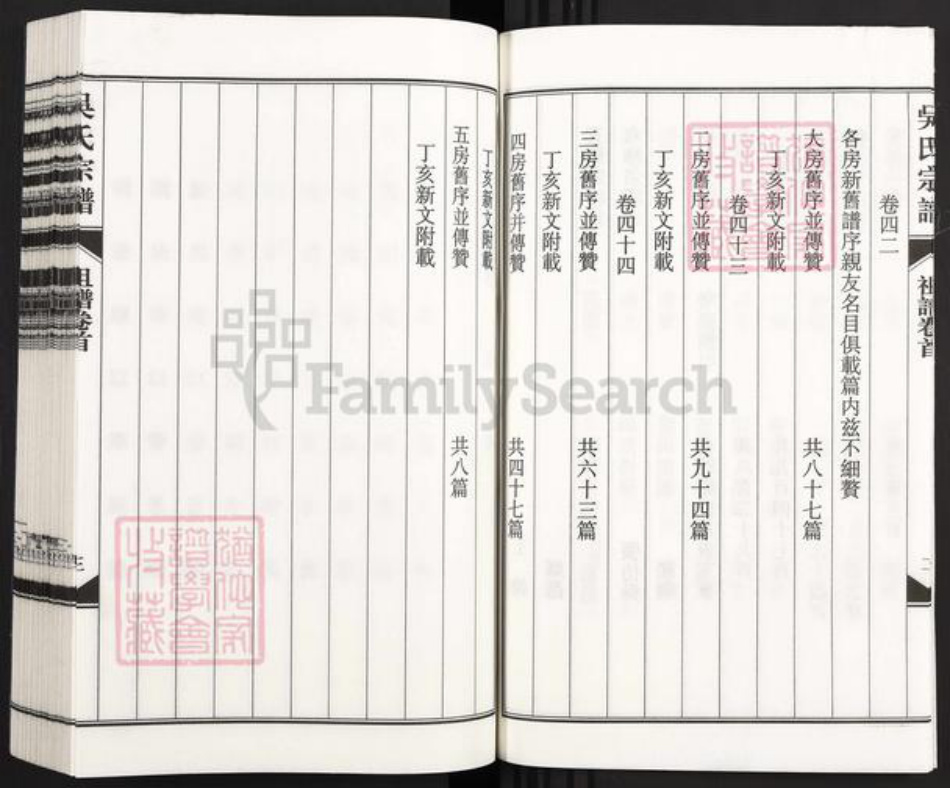 吳氏宗譜
祖譜卷首
卷四二
各房新舊譜序親友名目俱載篇内兹不細贅
大房舊序並傳贊 共八十七篇
丁亥新文附載
卷四十三
二房舊序並傳贊 共九十四篇
丁亥新文附載
卷四十四
三房舊序並傳贊 共六十三篇
丁亥新文附載
四房舊序并傳贊 共四十七篇
丁亥新文附載
五房舊序並傳贊 共八篇
丁亥新文附載
吳氏宗譜
祖譜卷首
FamilySearch